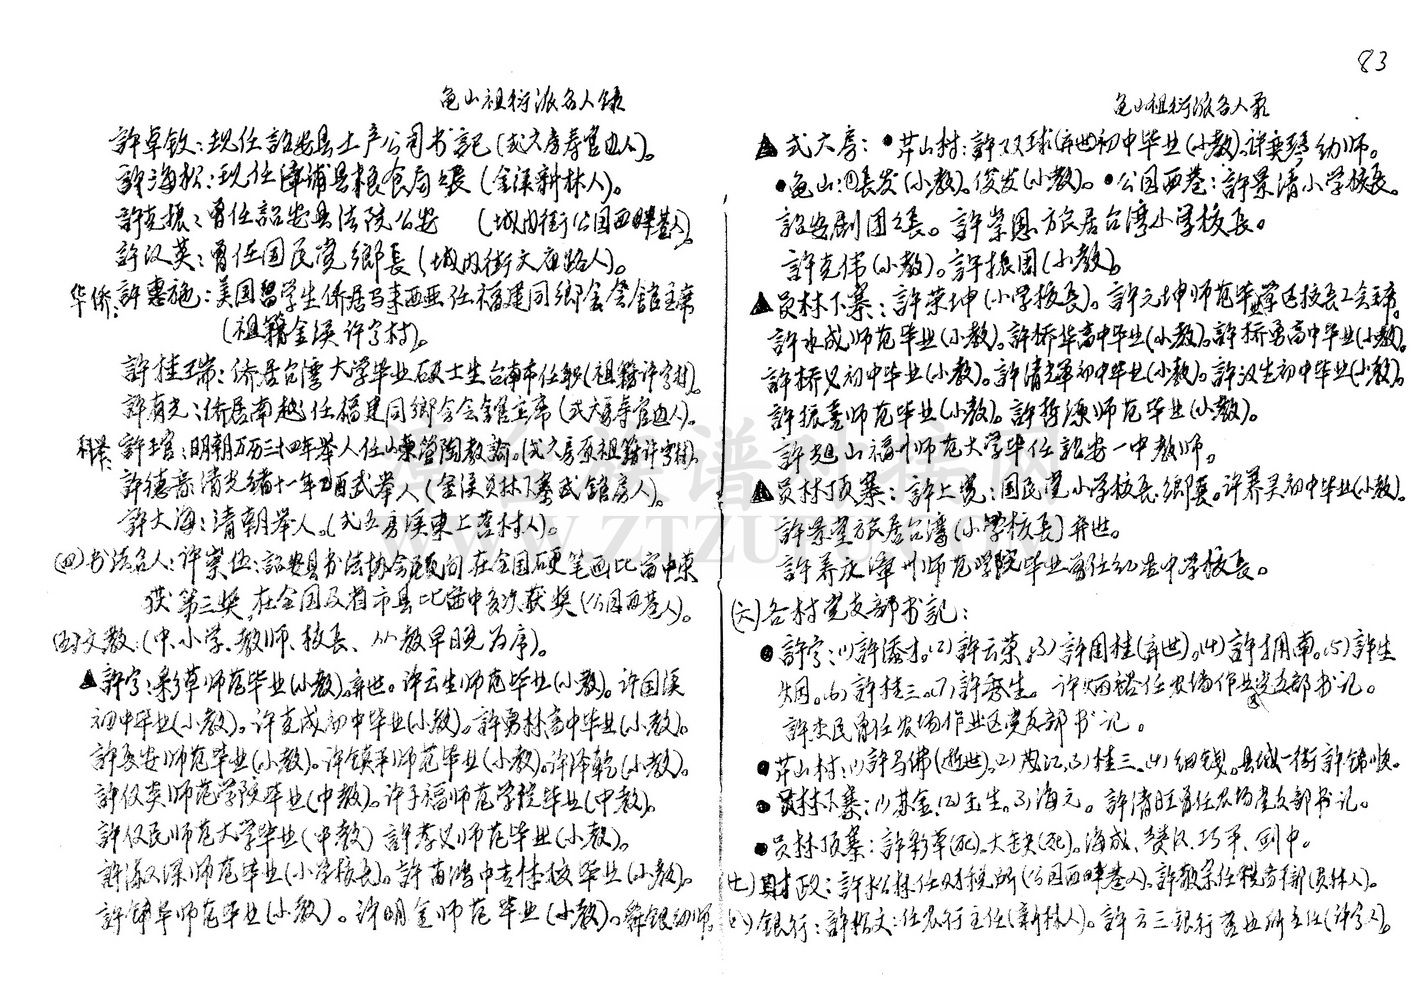 83
龟山祖衍派名人録
許卓欽：現任詔安县土产公司书記（弍六房寿官边人）。
許海松：现任漳浦县粮食局長（金溪新林人）。
許克振：曾任詔安县法院公安（城内街公园西畔巷人）。
許汉英：曾任国民党鄉長（城内街文庙路人）。
华侨：許惠施：美国留学生侨居马来西亚任福建同鄉会会館主席
（祖籍金溪许字村）。
許桂瑞：侨居台湾大学毕业硕士生台南市任职（祖籍许字村）。
許有光：侨居南越任福建同鄉会会館主席（弍六房寿官边人）。
科举：許玉官：明朝万历三十四年举人任山東館陶教諭。（弍六房原祖籍许字村）。
許德彰清光绪十一年乙酉武举人（金溪员林下寨武館房人）。
許大海：清朝举人。（弍五房溪東上营村人）。
(四)书法名人：许崇伍：詔安县书法协会顾问在全国硬笔画比宙中荣
获第三奖，在全国及省市县比宙中多次获奖（公园西巷人）。
(五)文教：（中、小学、教师、校長、从教早晚为序）。
▲許字：彩草师范毕业（小教）弃世。许云生师范毕业（小教）。许国溪
初中毕业（小教）。许克成初中毕业（小教）。許勇林高中毕业（小教）。
許長安师范毕业（小教）。许镇平师范毕业（小教）。许泽乾（小教）。
許仅英师范学院毕业（中教）。许子福师范学院毕业（中教）。
許仅民师范大学毕业（中教）許孝义师范毕业（小教）。
許溪深师范毕业（小学校長）。許苗鸿中专体校毕业（小教）。
許镇华师范毕业（小教）。许明金师范毕业（小教）。舜银幼师。
龟山祖衍派名人录
▲弍六房：●芹山村：許双球（弃世）初中毕业（小教）。许奕琴幼师。
●龟山：長发（小教）。俊发（小教）。●公园西巷：許景清小学校長。
詔安剧团长。許崇恩旅居台湾小学校長。
許克伟（小教）。許振国（小教）。
▲员林下寨：許荣坤（小学校長）。許元坤师范毕业学区校長工会主席。
許水成师范毕业（小教）。許桥华高中毕业（小教）。許桥勇高中毕业（小教）。
許桥义初中毕业（小教）。許清军初中毕业（小教）。許汉生初中毕业（小教）。
許振喜师范毕业（小教）。許哲源师范毕业（小教）。
許旭山福州师范大学毕任詔安一中教师。
▲员林顶寨：許上宽：国民党小学校長、鄉長。许养灵初中毕业（小教）。
許景堂旅居台湾（小学校長）弃世。
許养友漳州师范学院毕业曾任红星中学校長。
(六)各村党支部书記：
●許字：(1)許添才。(2)許云荣。(3)許国桂（弃世）。(4)許拥南。(5)許生
烟。(6)許桂三。(7)許秀生。许炳裕任农場作业区党支部书记。
許杰民曾任农场作业区党支部书记。
●芹山村：(1)許马佛（逝世）。(2)茂江。(3)桂三。(4)细钱。县城一街許锦顺。
●员林下寨：(1)苏金。(2)玉生。(3)海元。許清旺曾任农场党支部书记。
●员林顶寨：許彩草（死）。大缺（死）。海成、赞汉、巧平、剑中。
(七)財政：許松林任财税所（公园西畔巷人）。許敬宗任税务干部（员林人）。
(八)銀行：許松文：任农行主任（新林人）。許方三银行营业所主任（许字人）。
漳台族谱对接网
WWW.ZTZUPU.COM